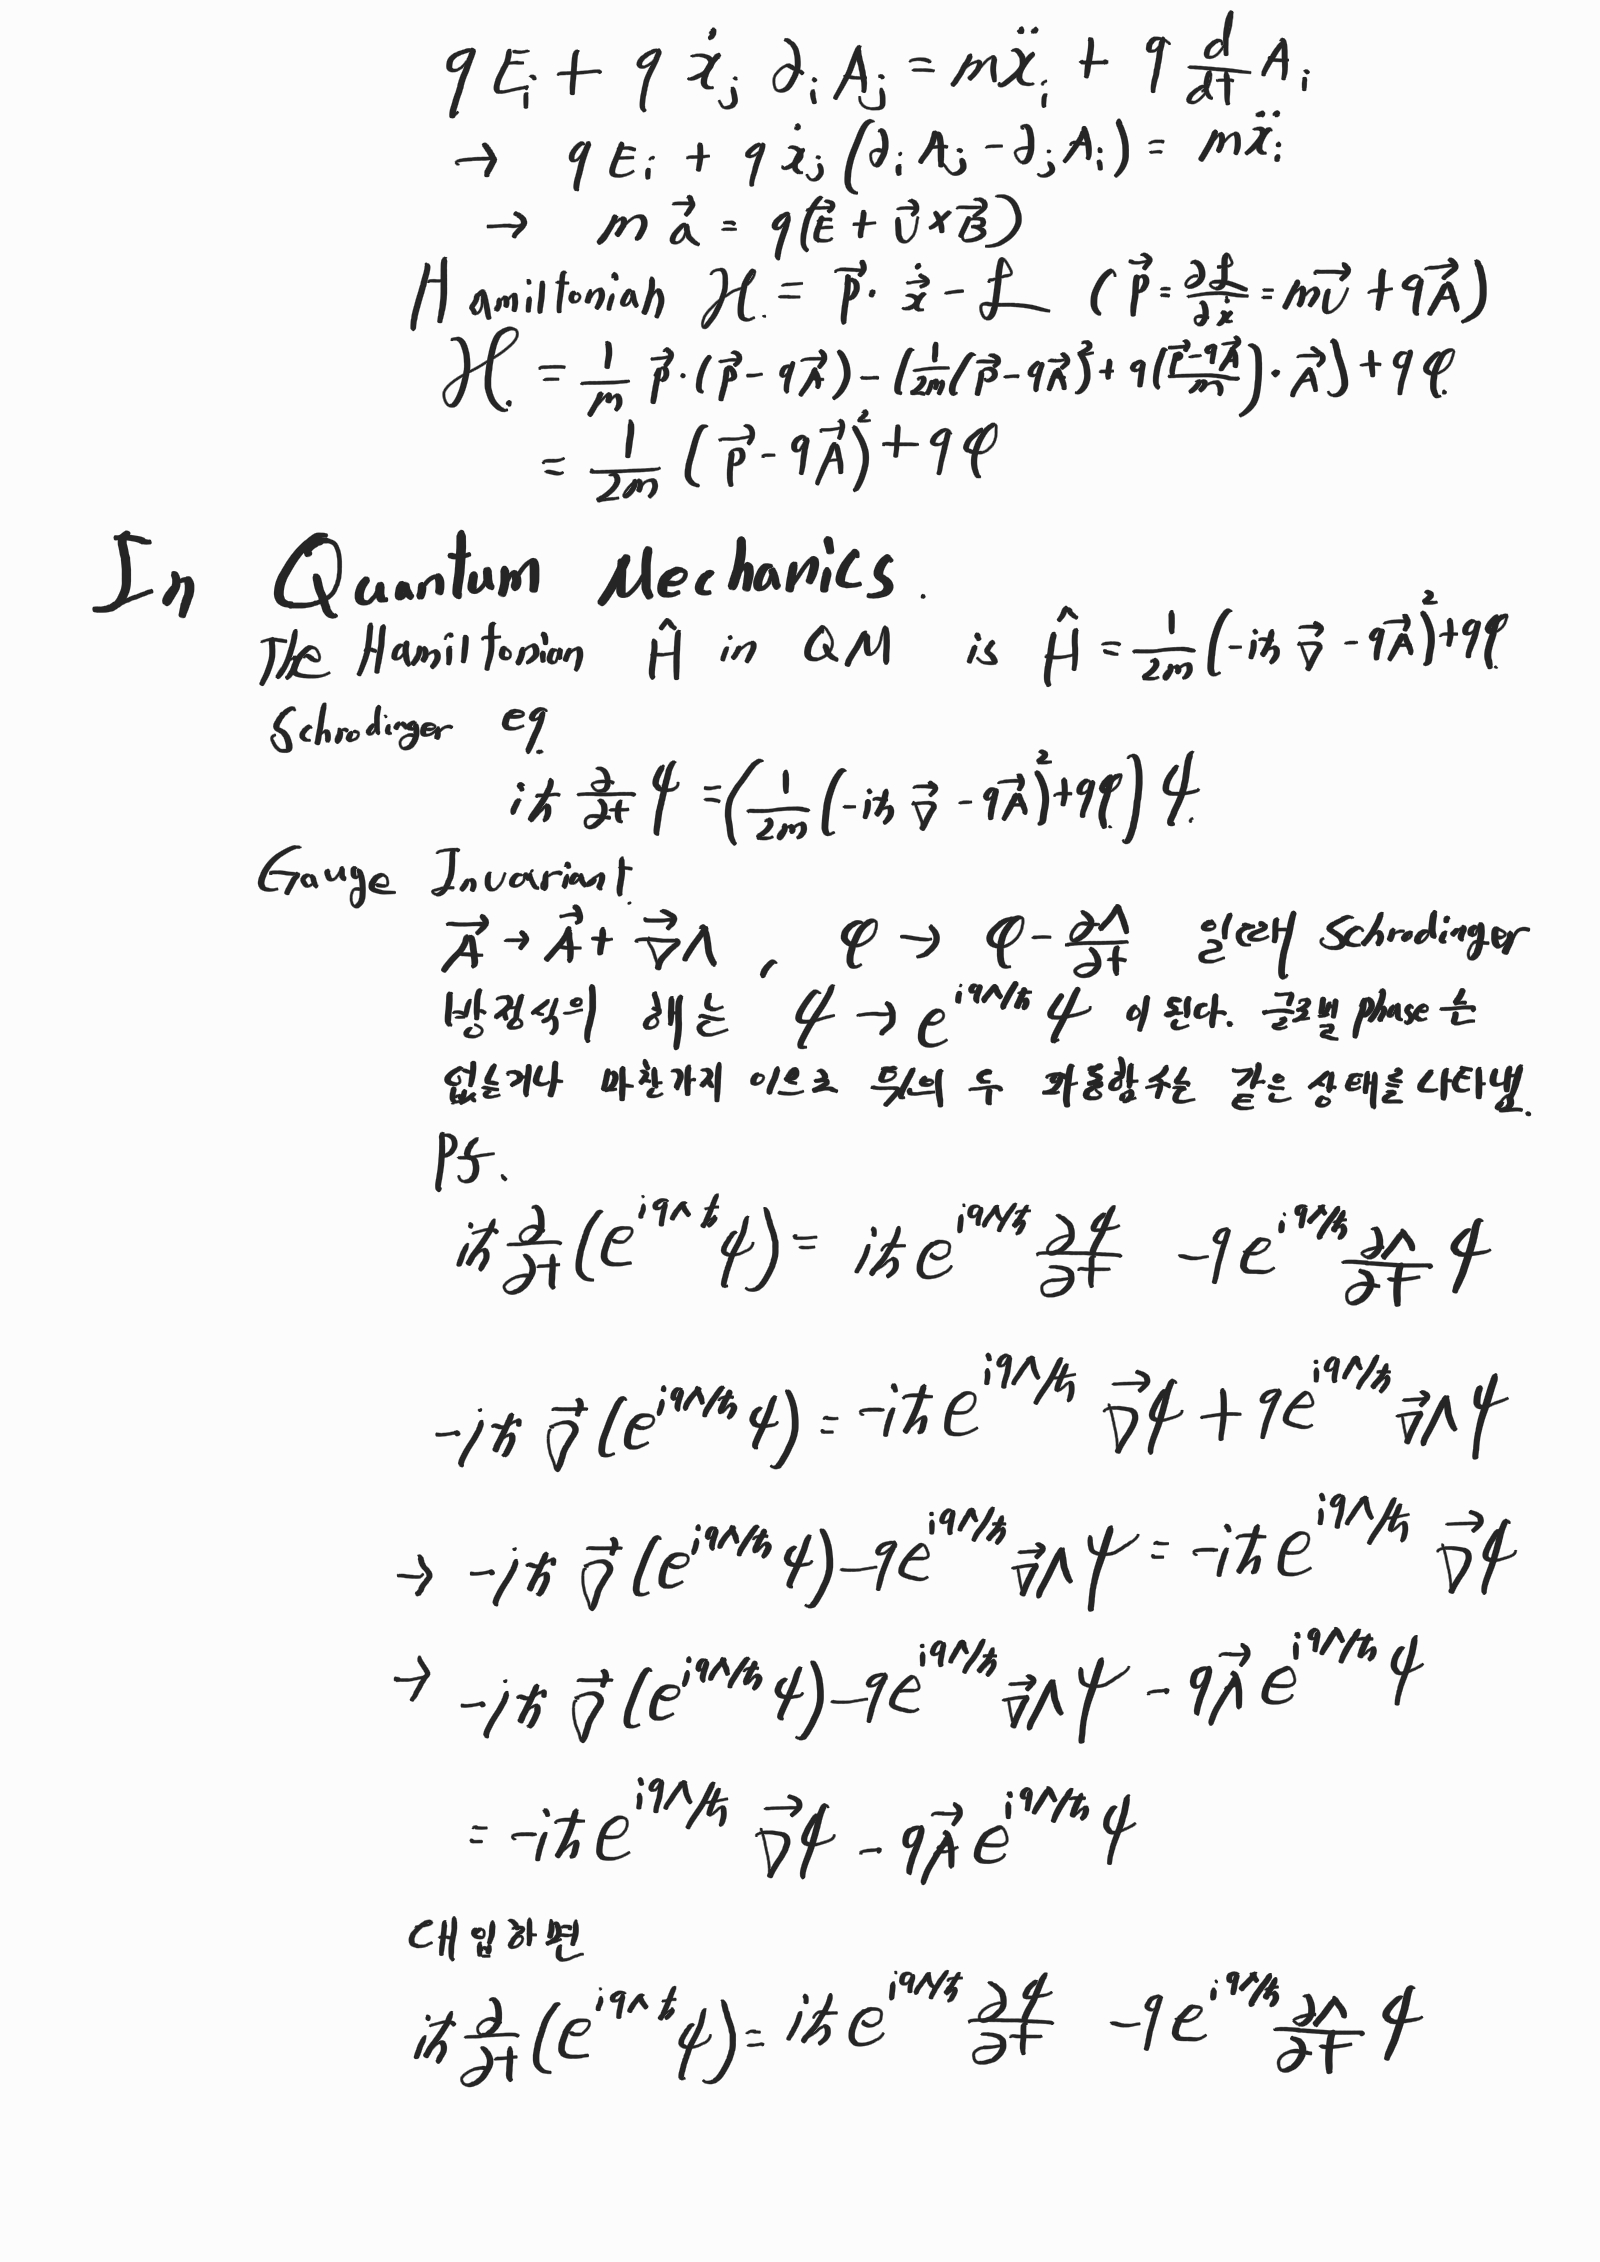 qEᵢ + q ẋⱼ ∂ᵢAⱼ = mẍᵢ + q d/dt Aᵢ
→ qEᵢ + qẋⱼ(∂ᵢAⱼ - ∂ⱼAᵢ) = mẍᵢ
→ m a⃗ = q(E⃗ + v⃗ × B⃗)
Hamiltonian ℋ = p⃗· ẋ⃗ - ℒ (p⃗ = ∂ℒ/∂ẋ = mv⃗ + qA⃗)
ℋ = 1/m p⃗·(p⃗ - qA⃗) - (1/2m(p⃗ - qA⃗)² + q(p⃗-qA⃗/m)·A⃗) + qφ
= 1/2m (p⃗ - qA⃗)² + qφ
In Quantum Mechanics.
The Hamiltonian Ĥ in QM is Ĥ = 1/2m(-iħ∇⃗ - qA⃗)² + qφ
Schrodinger eq.
iħ ∂/∂t ψ = (1/2m(-iħ∇⃗ - qA⃗)² + qφ) ψ
Gauge Invariant.
A⃗ → A⃗ + ∇⃗Λ , φ → φ - ∂Λ/∂t 일때 Schrodinger
방정식의 해는 ψ → e^{iqΛ/ħ} ψ 이 된다. 글로벌 phase 는
마찬가지 이므로 두 파동함수는 같은 상태를 나타냄.
Pf.
iħ ∂/∂t (e^{iqΛ/ħ} ψ) = iħ e^{iqΛ/ħ} ∂ψ/∂t - q e^{iqΛ/ħ} ∂Λ/∂t ψ
-iħ ∇⃗(e^{iqΛ/ħ} ψ) = -iħ e^{iqΛ/ħ} ∇⃗ψ + q e^{iqΛ/ħ} ∇⃗Λ ψ
→ -iħ ∇⃗(e^{iqΛ/ħ} ψ) - q e^{iqΛ/ħ} ∇⃗Λ ψ = -iħ e^{iqΛ/ħ} ∇⃗ψ
→ -iħ ∇⃗(e^{iqΛ/ħ} ψ) - q e^{iqΛ/ħ} ∇⃗Λ ψ - qA⃗ e^{iqΛ/ħ} ψ
= -iħ e^{iqΛ/ħ} ∇⃗ψ - qA⃗ e^{iqΛ/ħ} ψ
대입하면
iħ ∂/∂t (e^{iqΛ/ħ} ψ) = iħ e^{iqΛ/ħ} ∂ψ/∂t - q e^{iqΛ/ħ} ∂Λ/∂t ψ